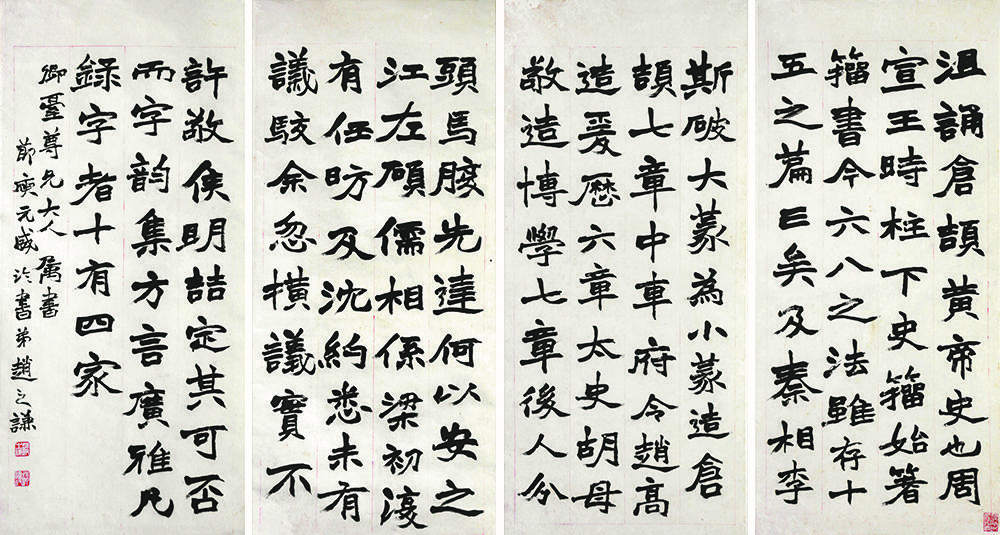 沮誦倉頡黃帝史也周
宣王時柱下史籀始著
籀書今六八之法雖存十
五之篇亡矣及秦相李
斯破大篆為小篆造倉
頡七章中車府令趙高
造爰歷六章太史胡母
敬造博學七章後人分
頭馬先達何以安之
江左碩儒相係梁初復
有任昉及沈約悉未有
議駮余忽橫議實不
許敬侯明喆定其可否
而字韵集方言廣雅凡
錄字者十有四家
尊兄大人屬書
節庾元威論書弟趙之謙